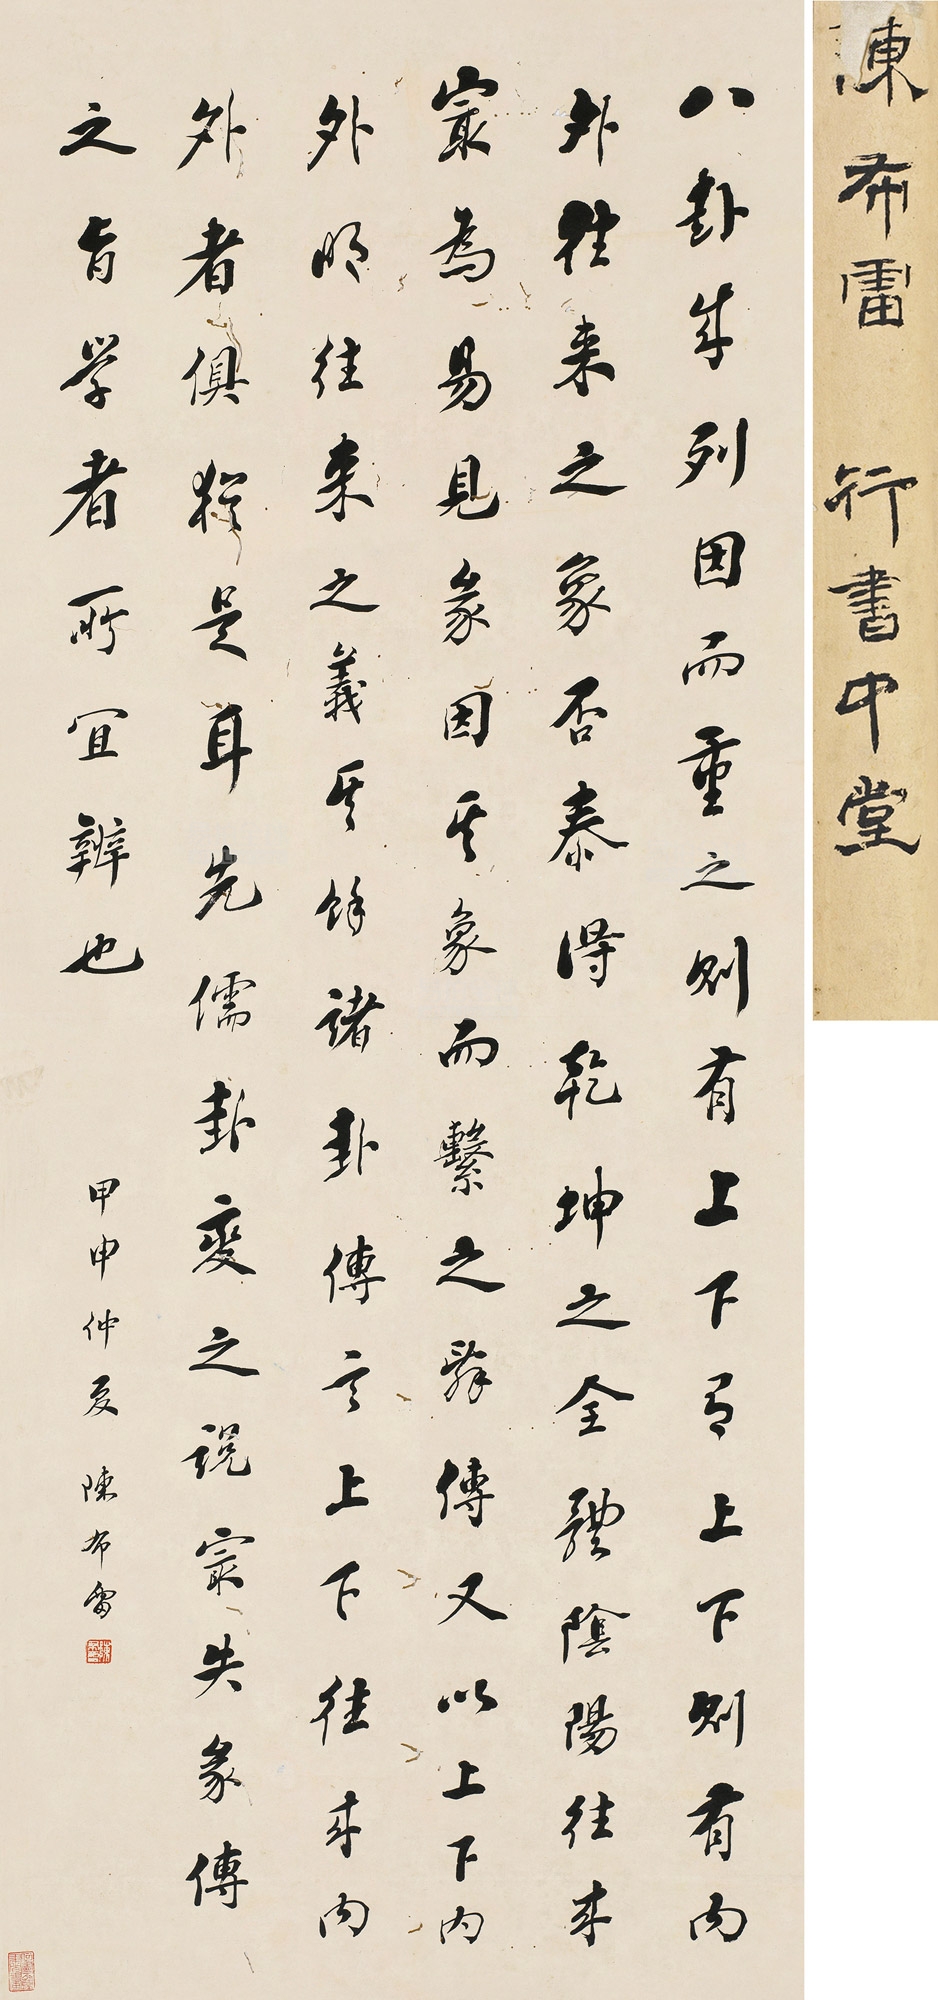 陳布雷 行書中堂
八卦成列因而重之則有上下有上下則有內
外往来之象否泰得乾坤之全體陰陽往来
冣為易見彖因其象而繫之辭傳又以上下內
外明往来之義其餘諸卦傳言上下往来内
外者俱猶是耳先儒卦變之説冣失彖傳
之旨学者所宜辨也
甲申仲夏 陳布雷